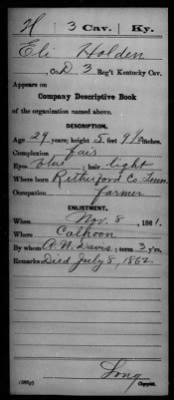 H | 3 Cav. | Ky.
Eli Holden
Co. D 3 Reg't Kentucky Cav.
Appears on
Company Descriptive Book
of the organization named above.
DESCRIPTION.
Age 29 years; height 5 feet 9½ inches.
Complexion fair
Eyes blue; hair light
Where born Rutherford Co. Tenn.
Occupation farmer
ENLISTMENT.
When Nov. 8, 1861.
Where Calhoon
By whom A. N. Davis; term 3 y'rs.
Remarks Died July 8, 1862.
Long
Copyist.